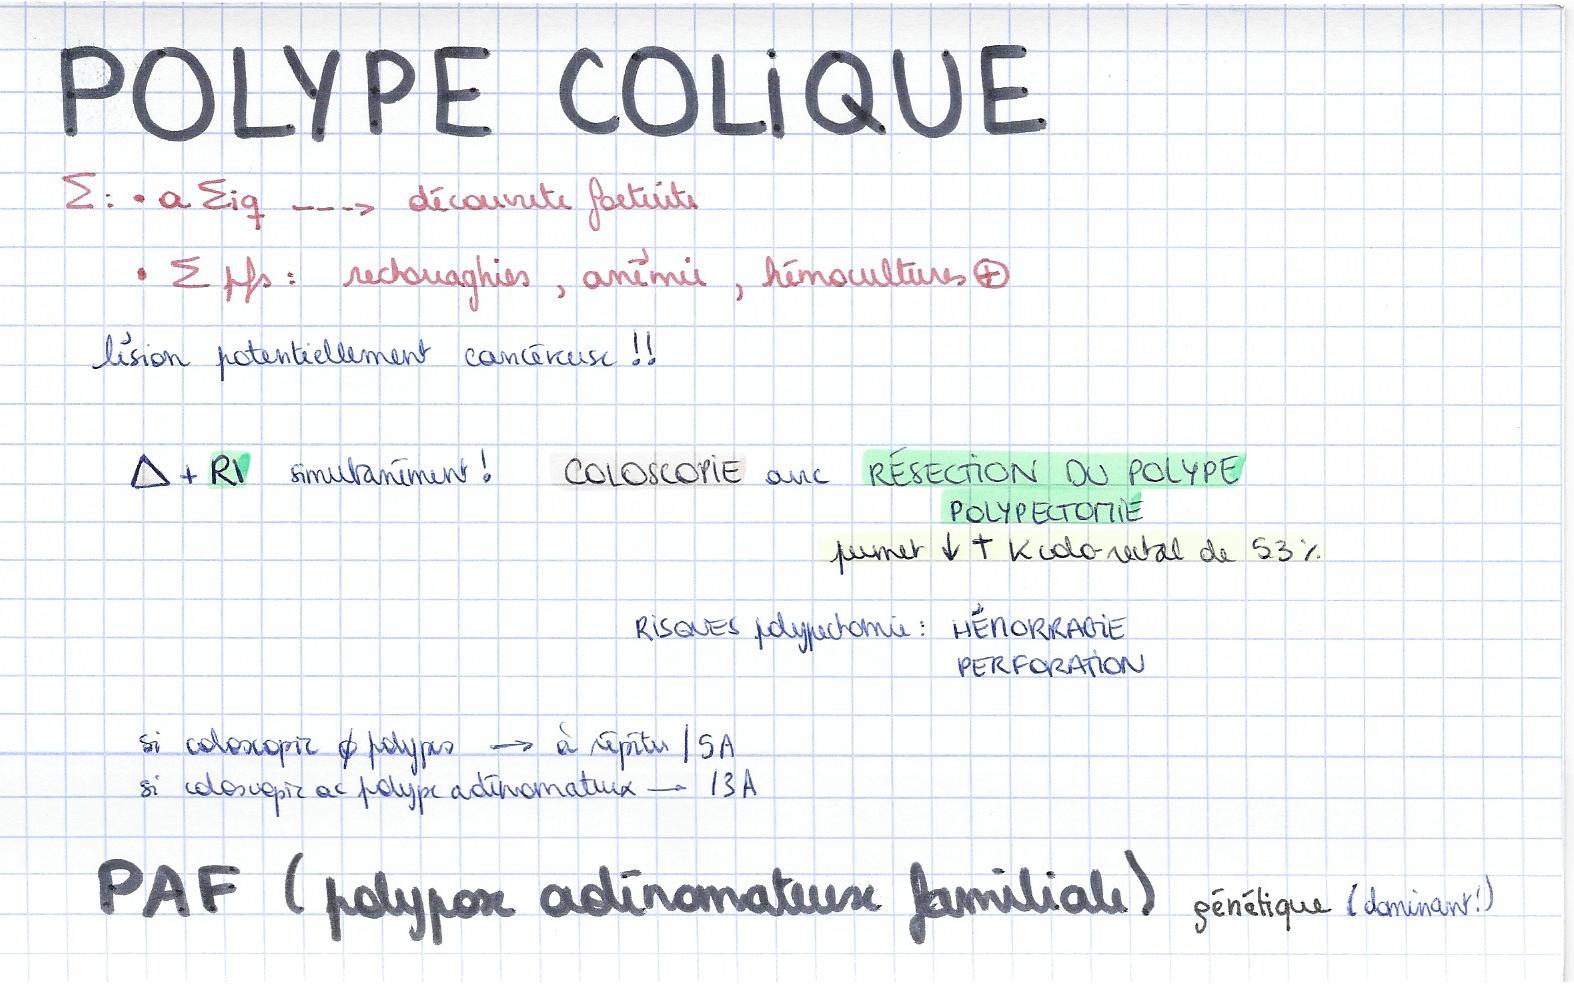 POLYPE COLIQUE
Σ: • a Σiq ---> découverte fortuite
• Σ pfs : rectorragies, anémie, hémocultures ⊕
lésion potentiellement cancéreuse !!
Δ + RV simultanément ! COLOSCOPIE avec RÉSECTION DU POLYPE
POLYPECTOMIE
permet ↓ † K colo-rectal de 53 %
RISQUES polypectomie : HÉMORRAGIE
PERFORATION
si coloscopie ∅ polypes → à répéter /5A
si coloscopie ac polype adénomateux → /3A
PAF (polypose adénomateuse familiale) génétique (dominant!)